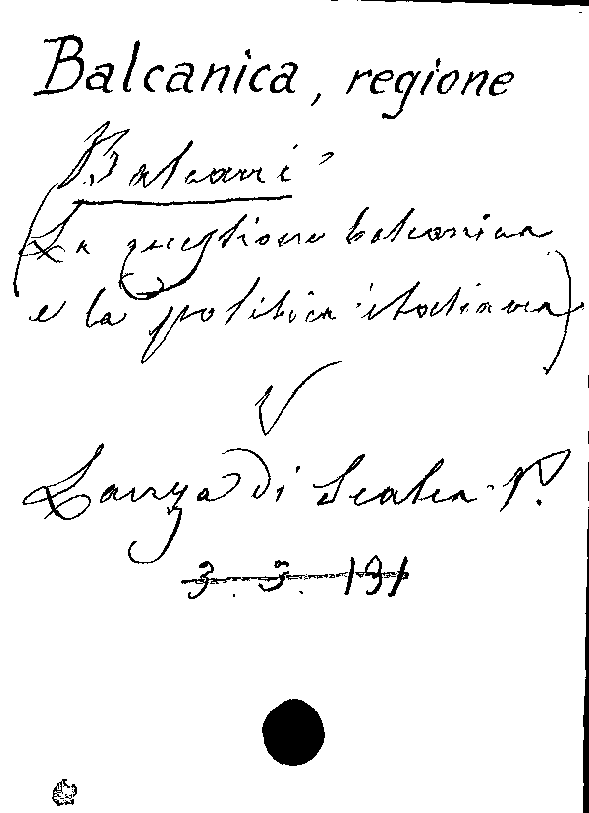 Balcanica, regione
Balcani
(La questione balcanica
e la politica italiana)
V
Lanza di Scalea P.
3. 3. 131